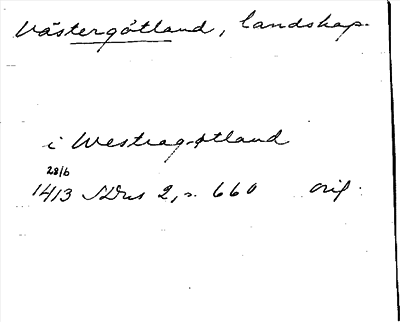 Västergötland, landskap.
i Westragøtland
28/6
1413 SDns 2, s. 660 orig.